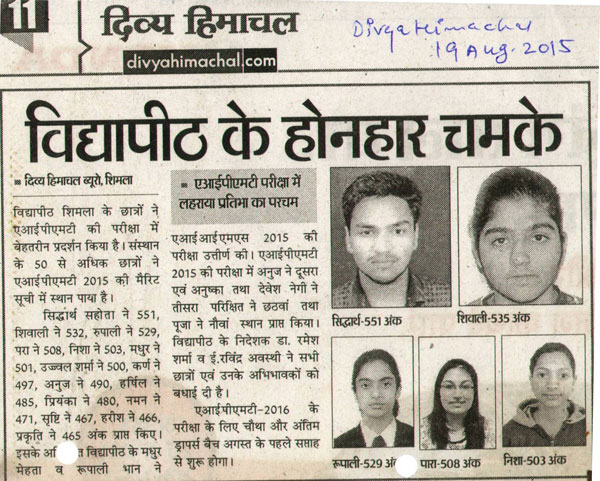 11
दिव्य हिमाचल
divyahimachal.com
Divya Himachal
19 Aug. 2015
विद्यापीठ के होनहार चमके
दिव्य हिमाचल ब्यूरो, शिमला
विद्यापीठ शिमला के छात्रों ने
एआईपीएमटी की परीक्षा में
बेहतरीन प्रदर्शन किया है। संस्थान
के 50 से अधिक छात्रों ने
एआईपीएमटी 2015 की मैरिट
सूची में स्थान पाया है।
सिद्धार्थ सहोता ने 551,
शिवाली ने 532, रुपाली ने 529,
परा ने 508, निशा ने 503, मधुर ने
501, उज्ज्वल शर्मा ने 500, कर्ण ने
497, अनुज ने 490, हर्षिल ने
485, प्रियंका ने 480, नमन ने
471, सृष्टि ने 467, हरीश ने 466,
प्रकृति ने 465 अंक प्राप्त किए।
इसके विद्यापीठ के मधुर
मेहता व रूपाली भान ने
एआईपीएमटी परीक्षा में
लहराया प्रतिभा का परचम
एआईआईएमएस 2015 की
परीक्षा उत्तीर्ण की। एआईपीएमटी
2015 की परीक्षा में अनुज ने दूसरा
एवं अनुष्का तथा देवेश नेगी ने
तीसरा परिक्षित ने छठवां तथा
पूजा ने नौवां स्थान प्राप्त किया।
विद्यापीठ के निदेशक डा. रमेश
शर्मा व ई.रविंद्र अवस्थी ने सभी
छात्रों एवं उनके अभिभावकों को
बधाई दी है।
एआईपीएमटी-2016 के
परीक्षा के लिए चौथा और अंतिम
ड्रापर्स बैच अगस्त के पहले सप्ताह
से शुरू होगा।
सिद्धार्थ-551 अंक
शिवाली-535 अंक
रूपाली-529 अं
पारा-508 अंक
निशा-503 अंक